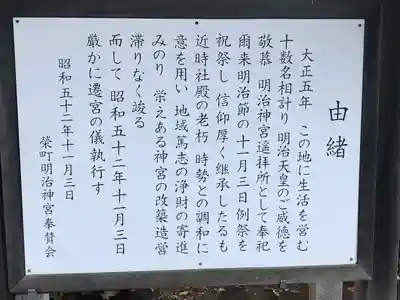 由緒
大正五年 この地に生活を営む
十数名相計り 明治天皇のご威徳を
敬慕 明治神宮遥拝所として奉祀
爾来明治節の十一月三日例祭を
祝祭し 信仰厚く継承したるも
近時社殿の老朽 時勢との調和に
意を用い 地域篤志の浄財の寄進
みのり 栄えある神宮の改築造営
滞りなく竣る
而して 昭和五十二年十一月三日
厳かに遷宮の儀執行す
昭和五十二年十一月三日
榮町明治神宮奉賛会